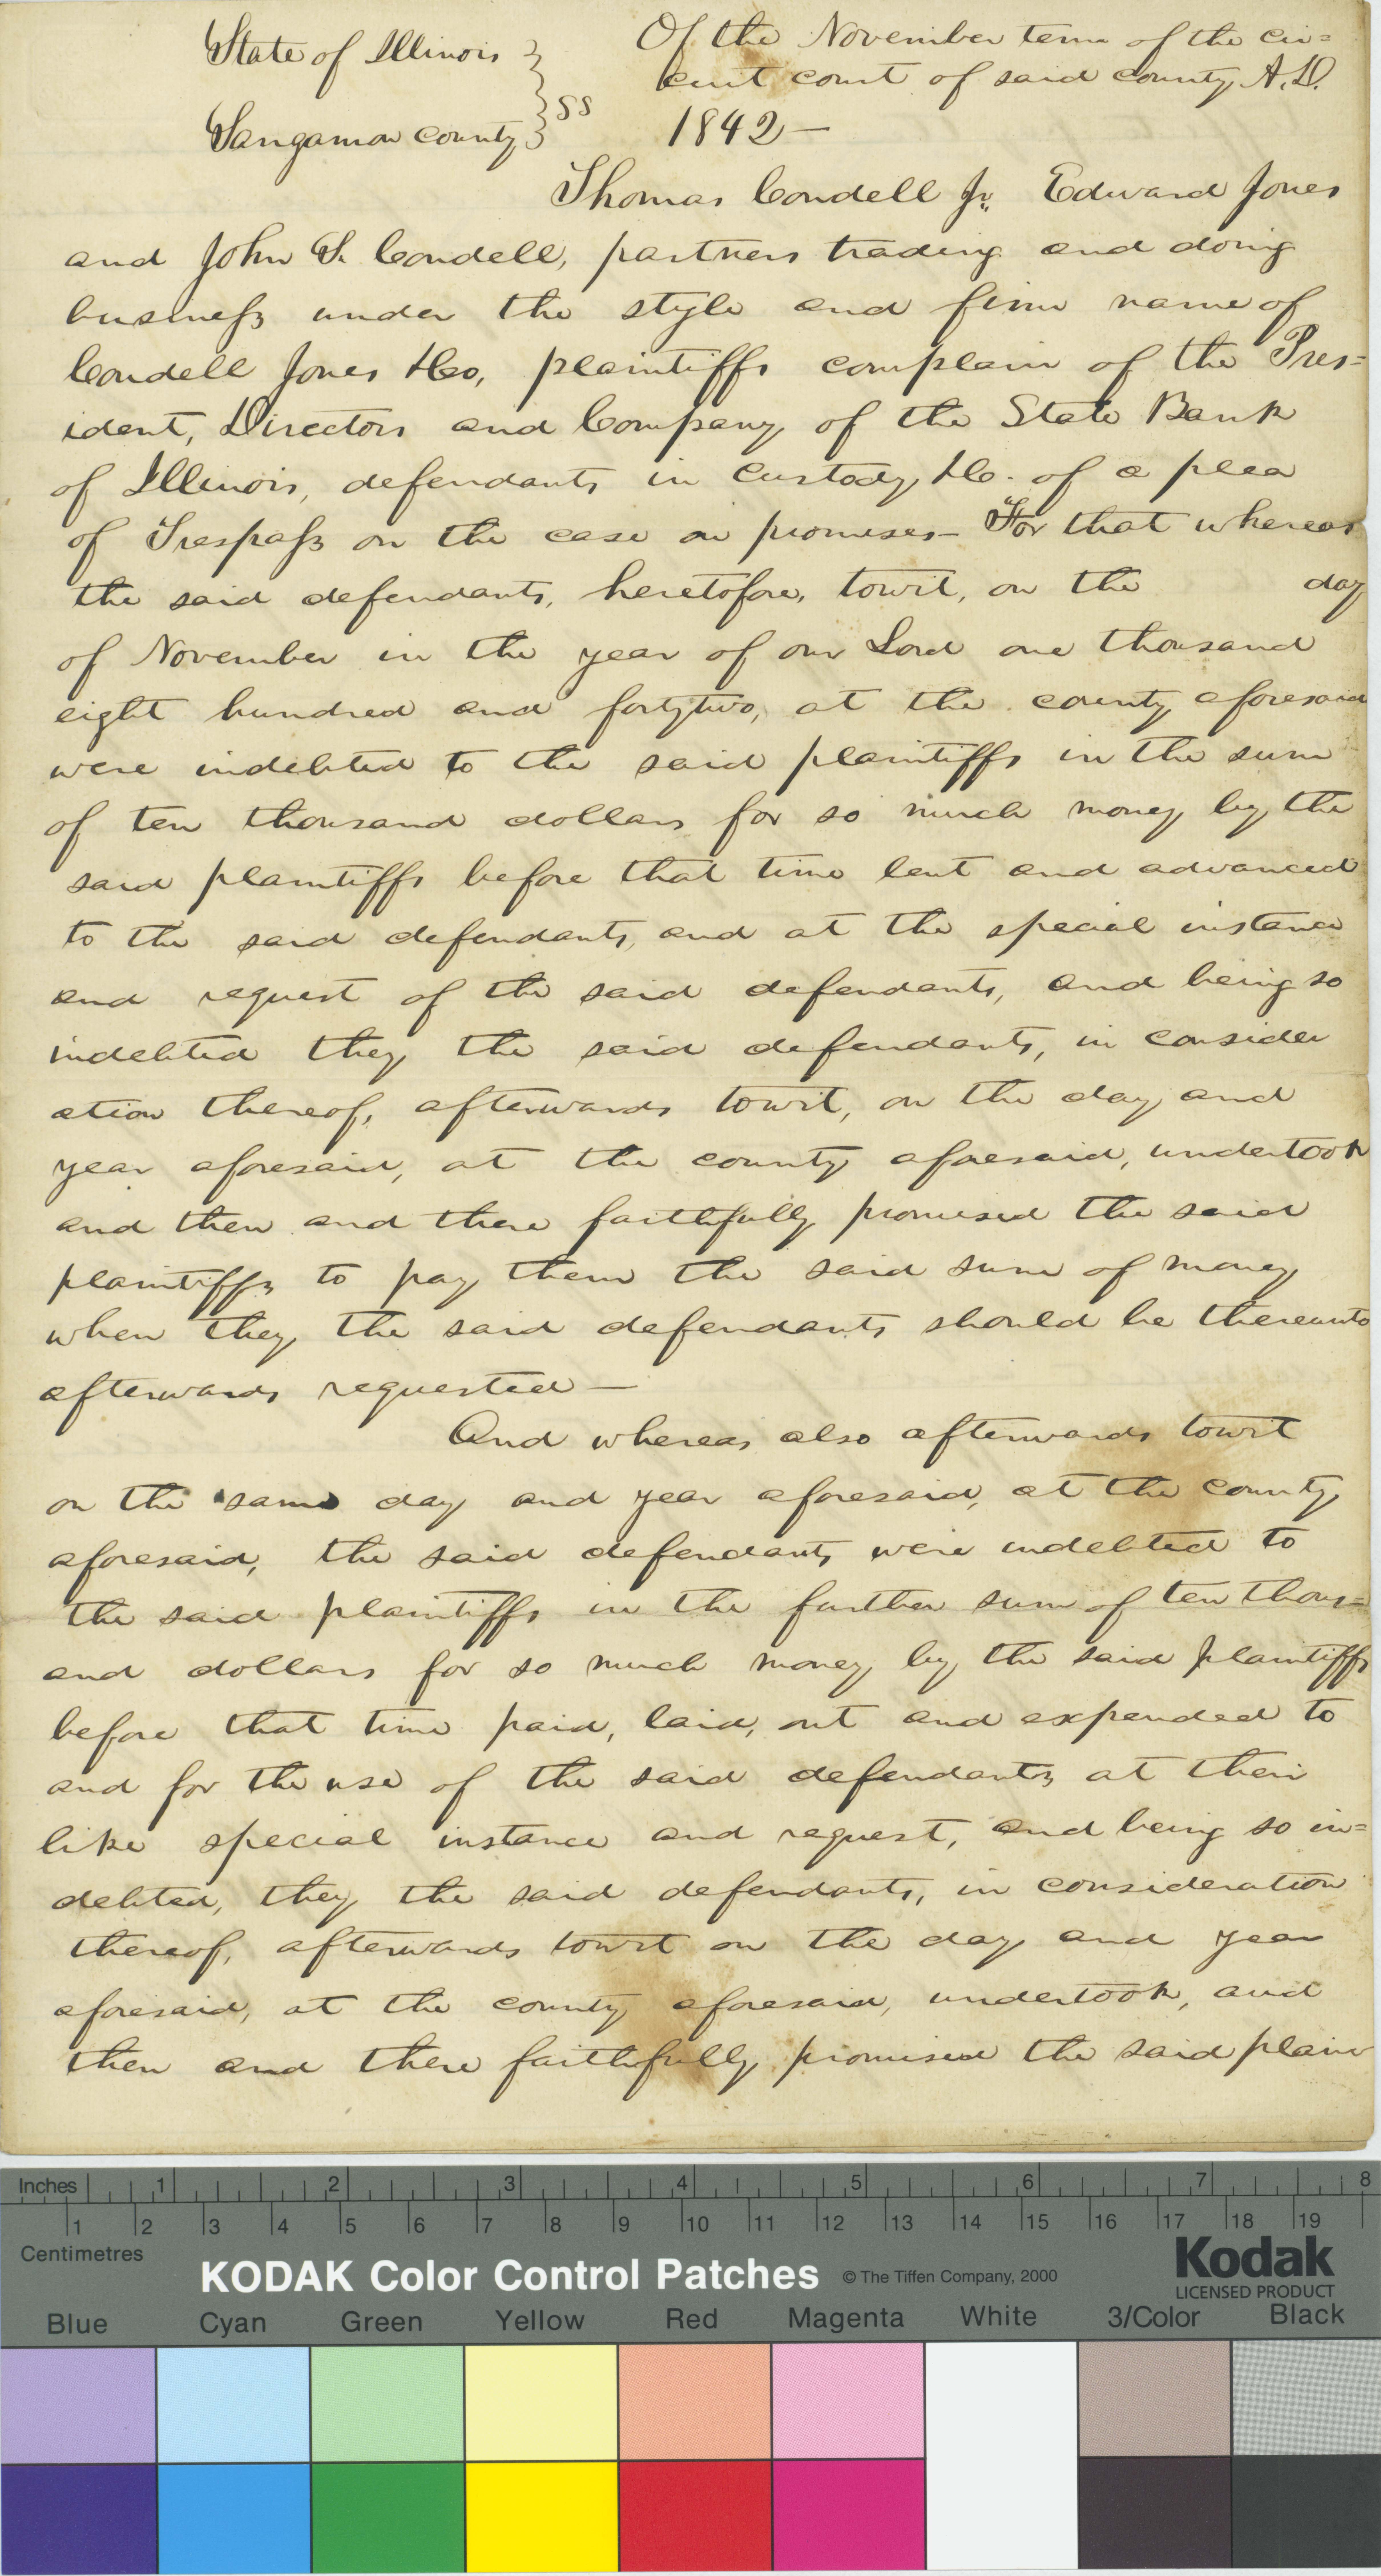 State of Illinois } Of the November term of the cir=
} SS cuit court of said county A.D.
Sangamon county } 1842—
Thomas Condell Jr. Edward Jones
and John S. Condell, partners trading and doing
business under the style and firm name of
Condell Jones &Co, plaintiffs complain of the Pres=
ident, Directors and Company of the State Bank
of Illinois, defendants in custody &c. of a plea
of Trespass on the case on promises— For that whereas
the said defendants, heretofore, towit, on the day
of November in the year of our Lord one thousand
eight hundred and fortytwo, at the county aforesaid
were indebted to the said plaintiffs in the sum
of ten thousand dollars for so much money by the
said plaintiffs before that time lent and advanced
to the said defendants, and at the special instance
and request of the said defendants, and being so
indebted they the said defendants, in consider
ation thereof, afterwards towit, on the day and
year aforesaid, at the county aforesaid, undertook
and then and there faithfully promised the said
plaintiffs to pay them the said sum of money
when they the said defendants should be thereunto
afterwards requested—
And whereas also afterwards towit
on the same day and year aforesaid, at the county
aforesaid, the said defendants were indebted to
the said plaintiffs in the further sum of ten thous=
and dollars for so much money by the said plaintiffs
before that time paid, laid, out and expended to
and for the use of the said defendants at their
like special instance and request, and being so in=
debted, they the said defendants, in consideration
thereof, afterwards towit on the day and year
aforesaid, at the county aforesaid, undertook, and
then and there faithfully promised the said plain
Inches 1 2 3 4 5 6 7 8
1 2 3 4 5 6 7 8 9 10 11 12 13 14 15 16 17 18 19
Centimetres
KODAK Color Control Patches © The Tiffen Company, 2000 Kodak
LICENSED PRODUCT
Blue Cyan Green Yellow Red Magenta White 3/Color Black